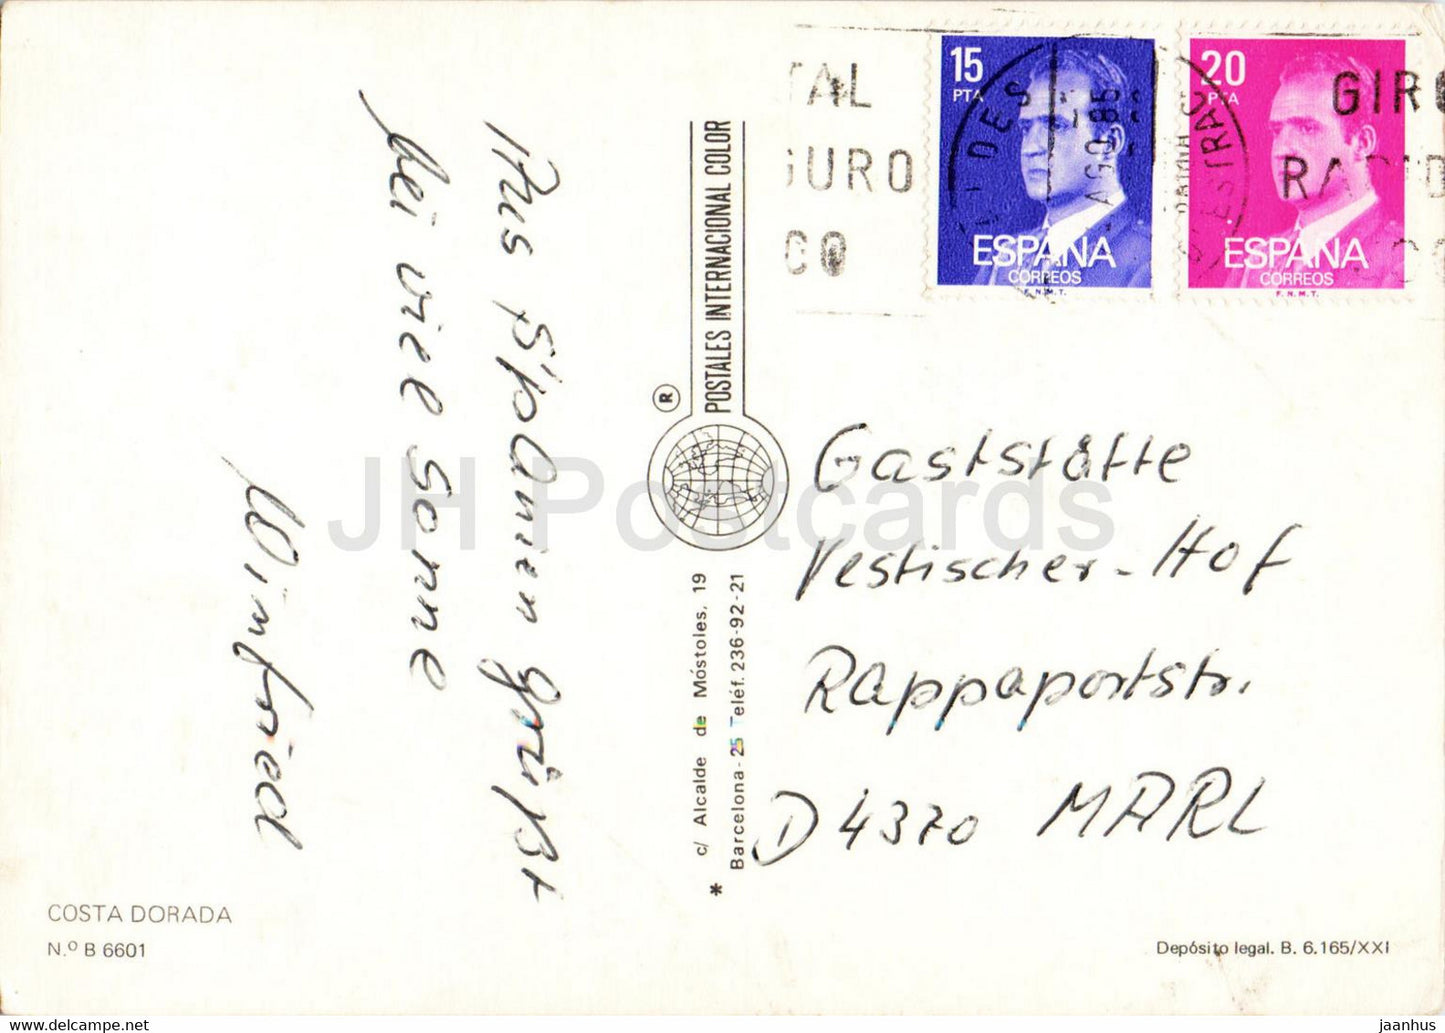 Aus Spanien grüßt
bei viel Sonne
Winfried
COSTA DORADA
N.º B 6601
® POSTALES INTERNACIONAL COLOR
* c/ Alcalde de Móstoles, 19
Barcelona - 25 Teléf. 236-92-21
15
PTA
ESPAÑA
CORREOS
F.N.M.T.
20
PTA
ESPAÑA
CORREOS
F.N.M.T.
AGO 85
GIRO
Gaststätte
Vestischer-Hof
Rappaportstr.
D 4370 MARL
Depósito legal. B. 6.165/XXI
JH Postcards
jaanhus